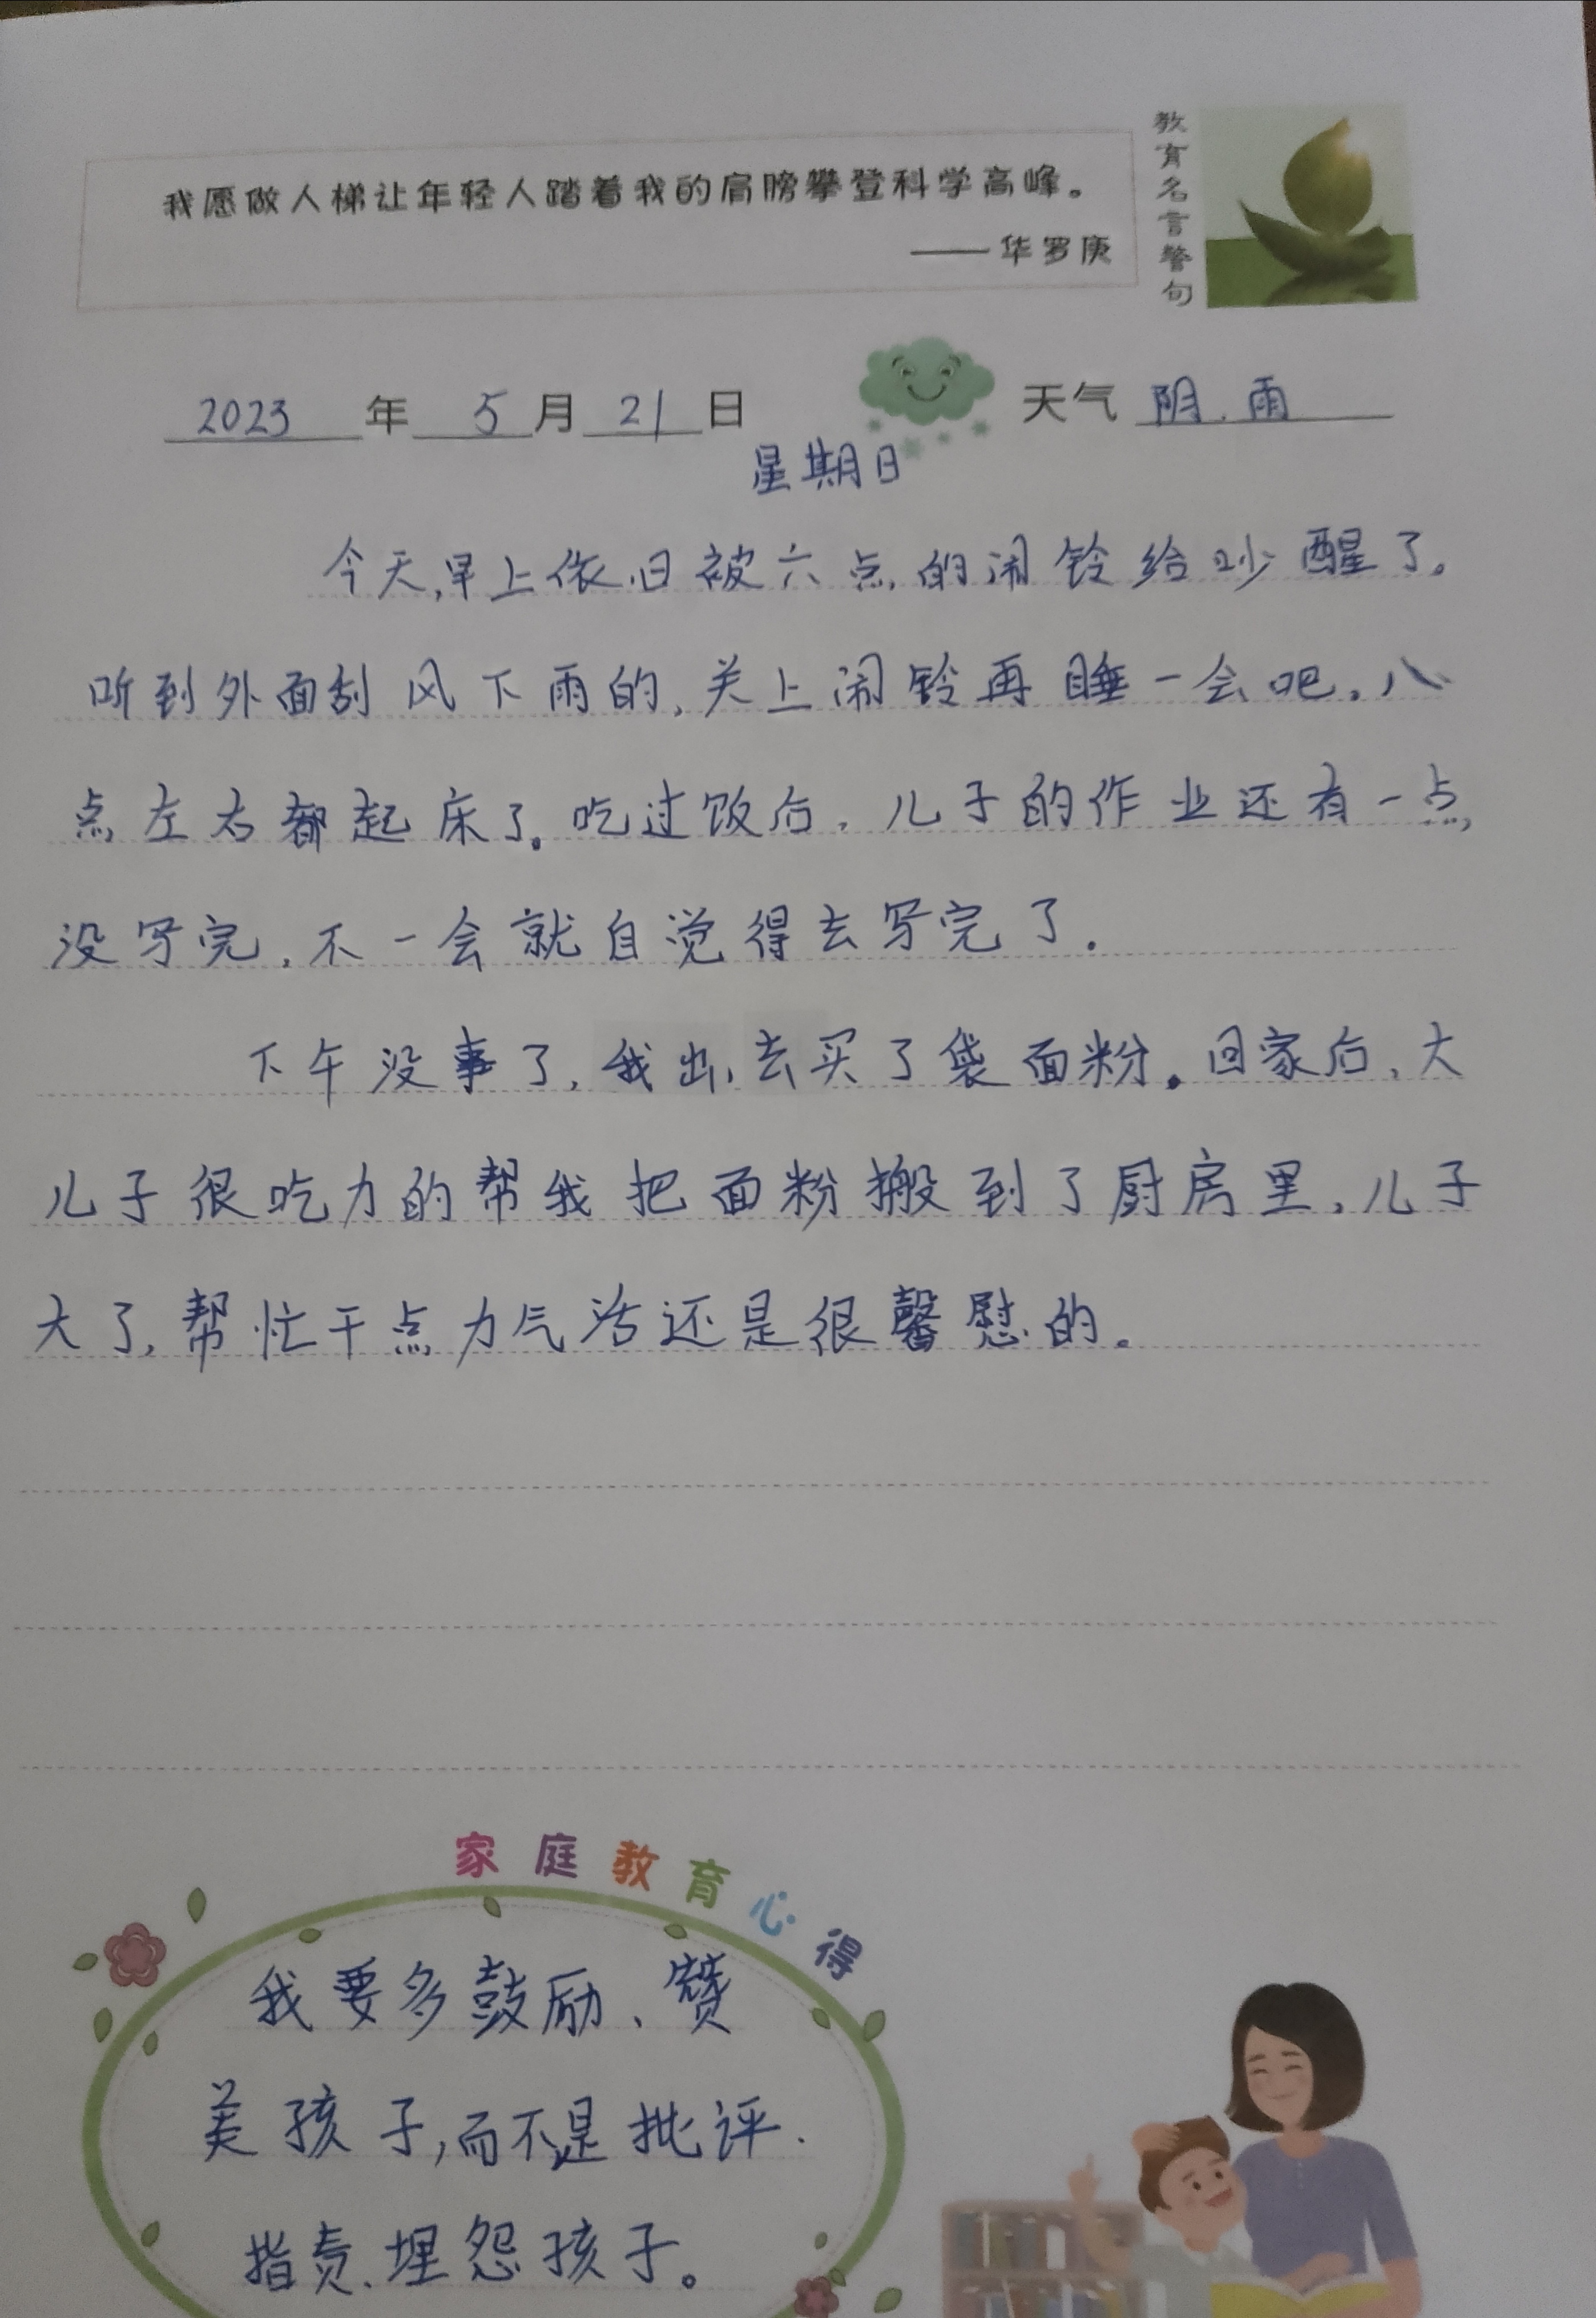 我愿做人梯让年轻人踏着我的肩膀攀登科学高峰。
——华罗庚
教育名言警句
2023年5月21日 天气 阴.雨
星期日
今天,早上依旧被六点的闹铃给吵醒了。
听到外面刮风下雨的,关上闹铃再睡一会吧,八
点左右都起床了。吃过饭后,儿子的作业还有一点,
没写完,不一会就自觉得去写完了.
下午没事了,我出去买了袋面粉。回家后,大
儿子很吃力的帮我把面粉搬到了厨房里,儿子
大了,帮忙干点力气活还是很馨慰的。
家庭教育心得
我要多鼓励、赞
美孩子,而不是批评.
指责.埋怨孩子。